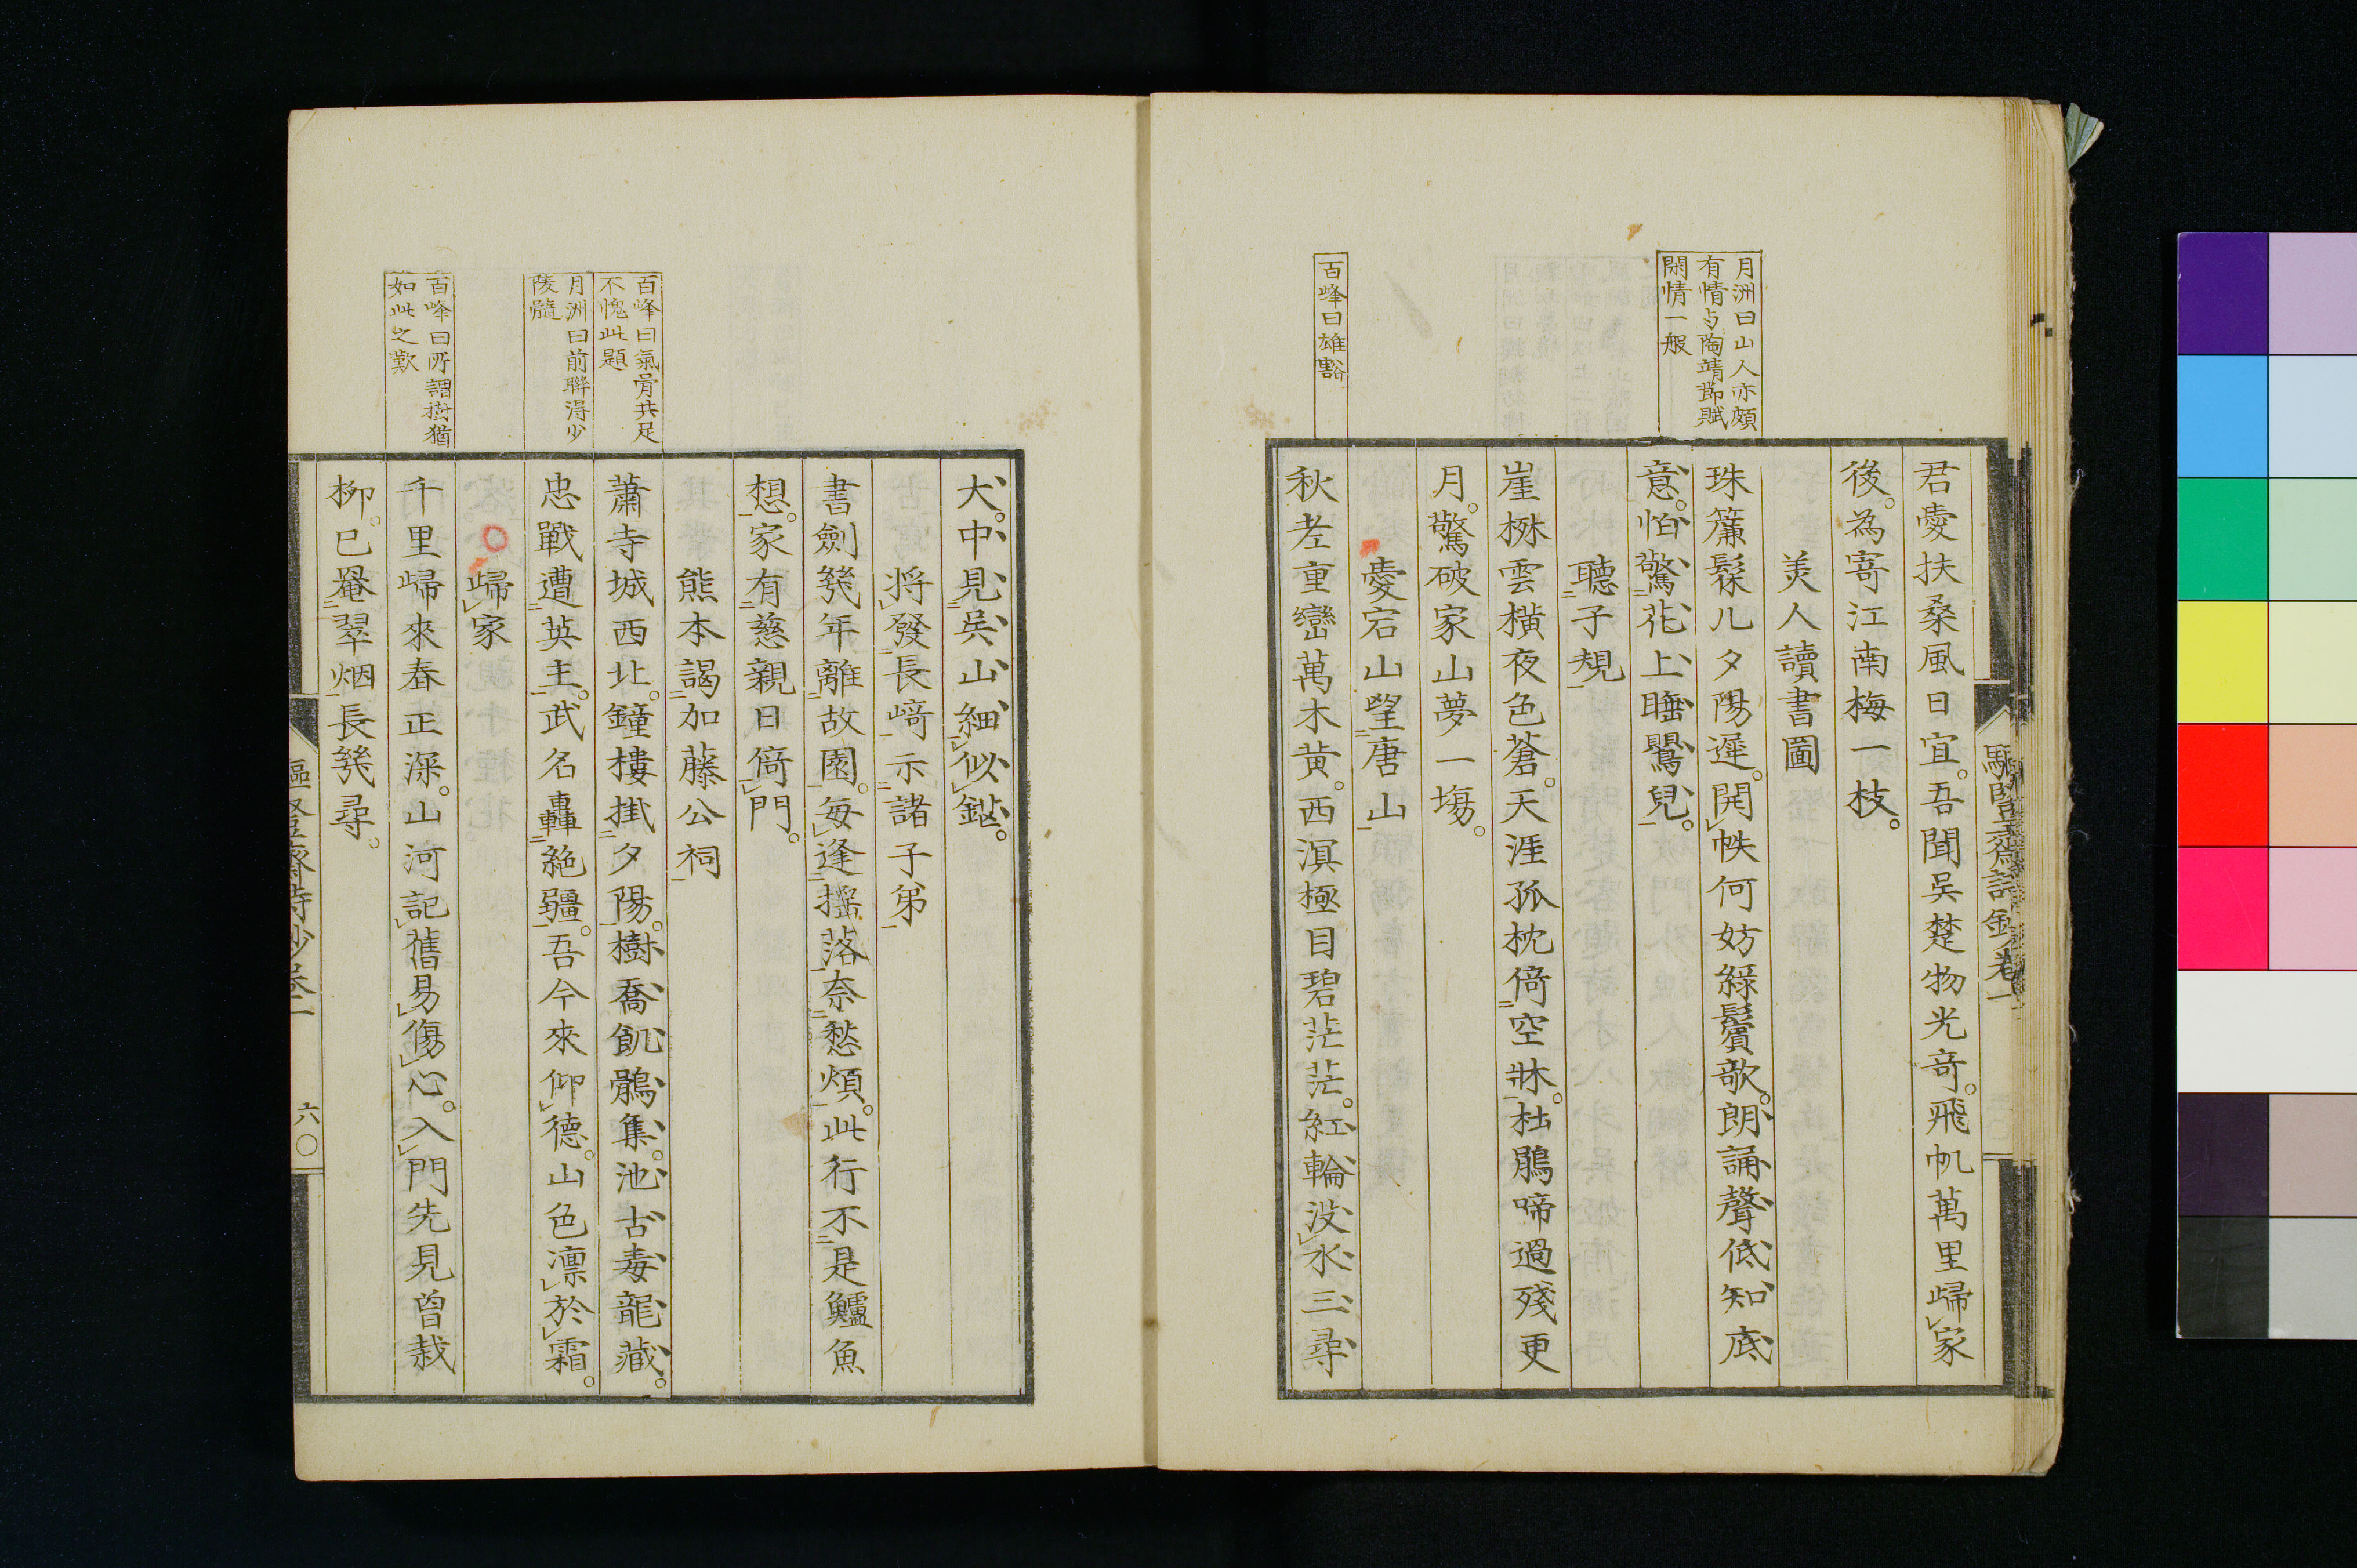 月洲曰山人亦頗
有情与陶靖節賦
閑情一般
百峰曰雄豁
君憂扶桑風日宜。吾聞吳楚物光奇。飛帆萬里歸家
後。為寄江南梅一枝。
美人讀書圖
珠簾鬆几夕陽遲。開帙何妨綠鬢欹。朗誦聲低知底
意。怕驚花上睡鸎兒。
聽子規
崖樹雲橫夜色蒼。天涯孤枕倚空牀。杜鵑啼過殘更
月。驚破家山夢一場。
愛宕山望唐山
秋老重巒萬木黄。西溟極目碧茫茫。紅輪没水三尋
驅豎斎詩鈔卷一
百峰曰氣骨共足
不愧此題
月洲曰前聯得少
陵髓
百峰曰所謂樹猶
如此之歎
大。中見吳山細似鍖。
将發長﨑示諸子弟
書劍幾年離故園。每逢摇落奈愁煩。此行不是鱸魚
想。家有慈親日倚門。
熊本謁加藤公祠
蕭寺城西北。鐘樓掛夕陽。樹喬飢鶻集。池古毒龍藏。
忠戰遭英主。武名轟絶疆。吾今來仰德。山色凛於霜。
歸家
千里歸來春正深。山河記舊易傷心。入門先見曽栽
柳。已罨翠烟長幾尋。
六〇